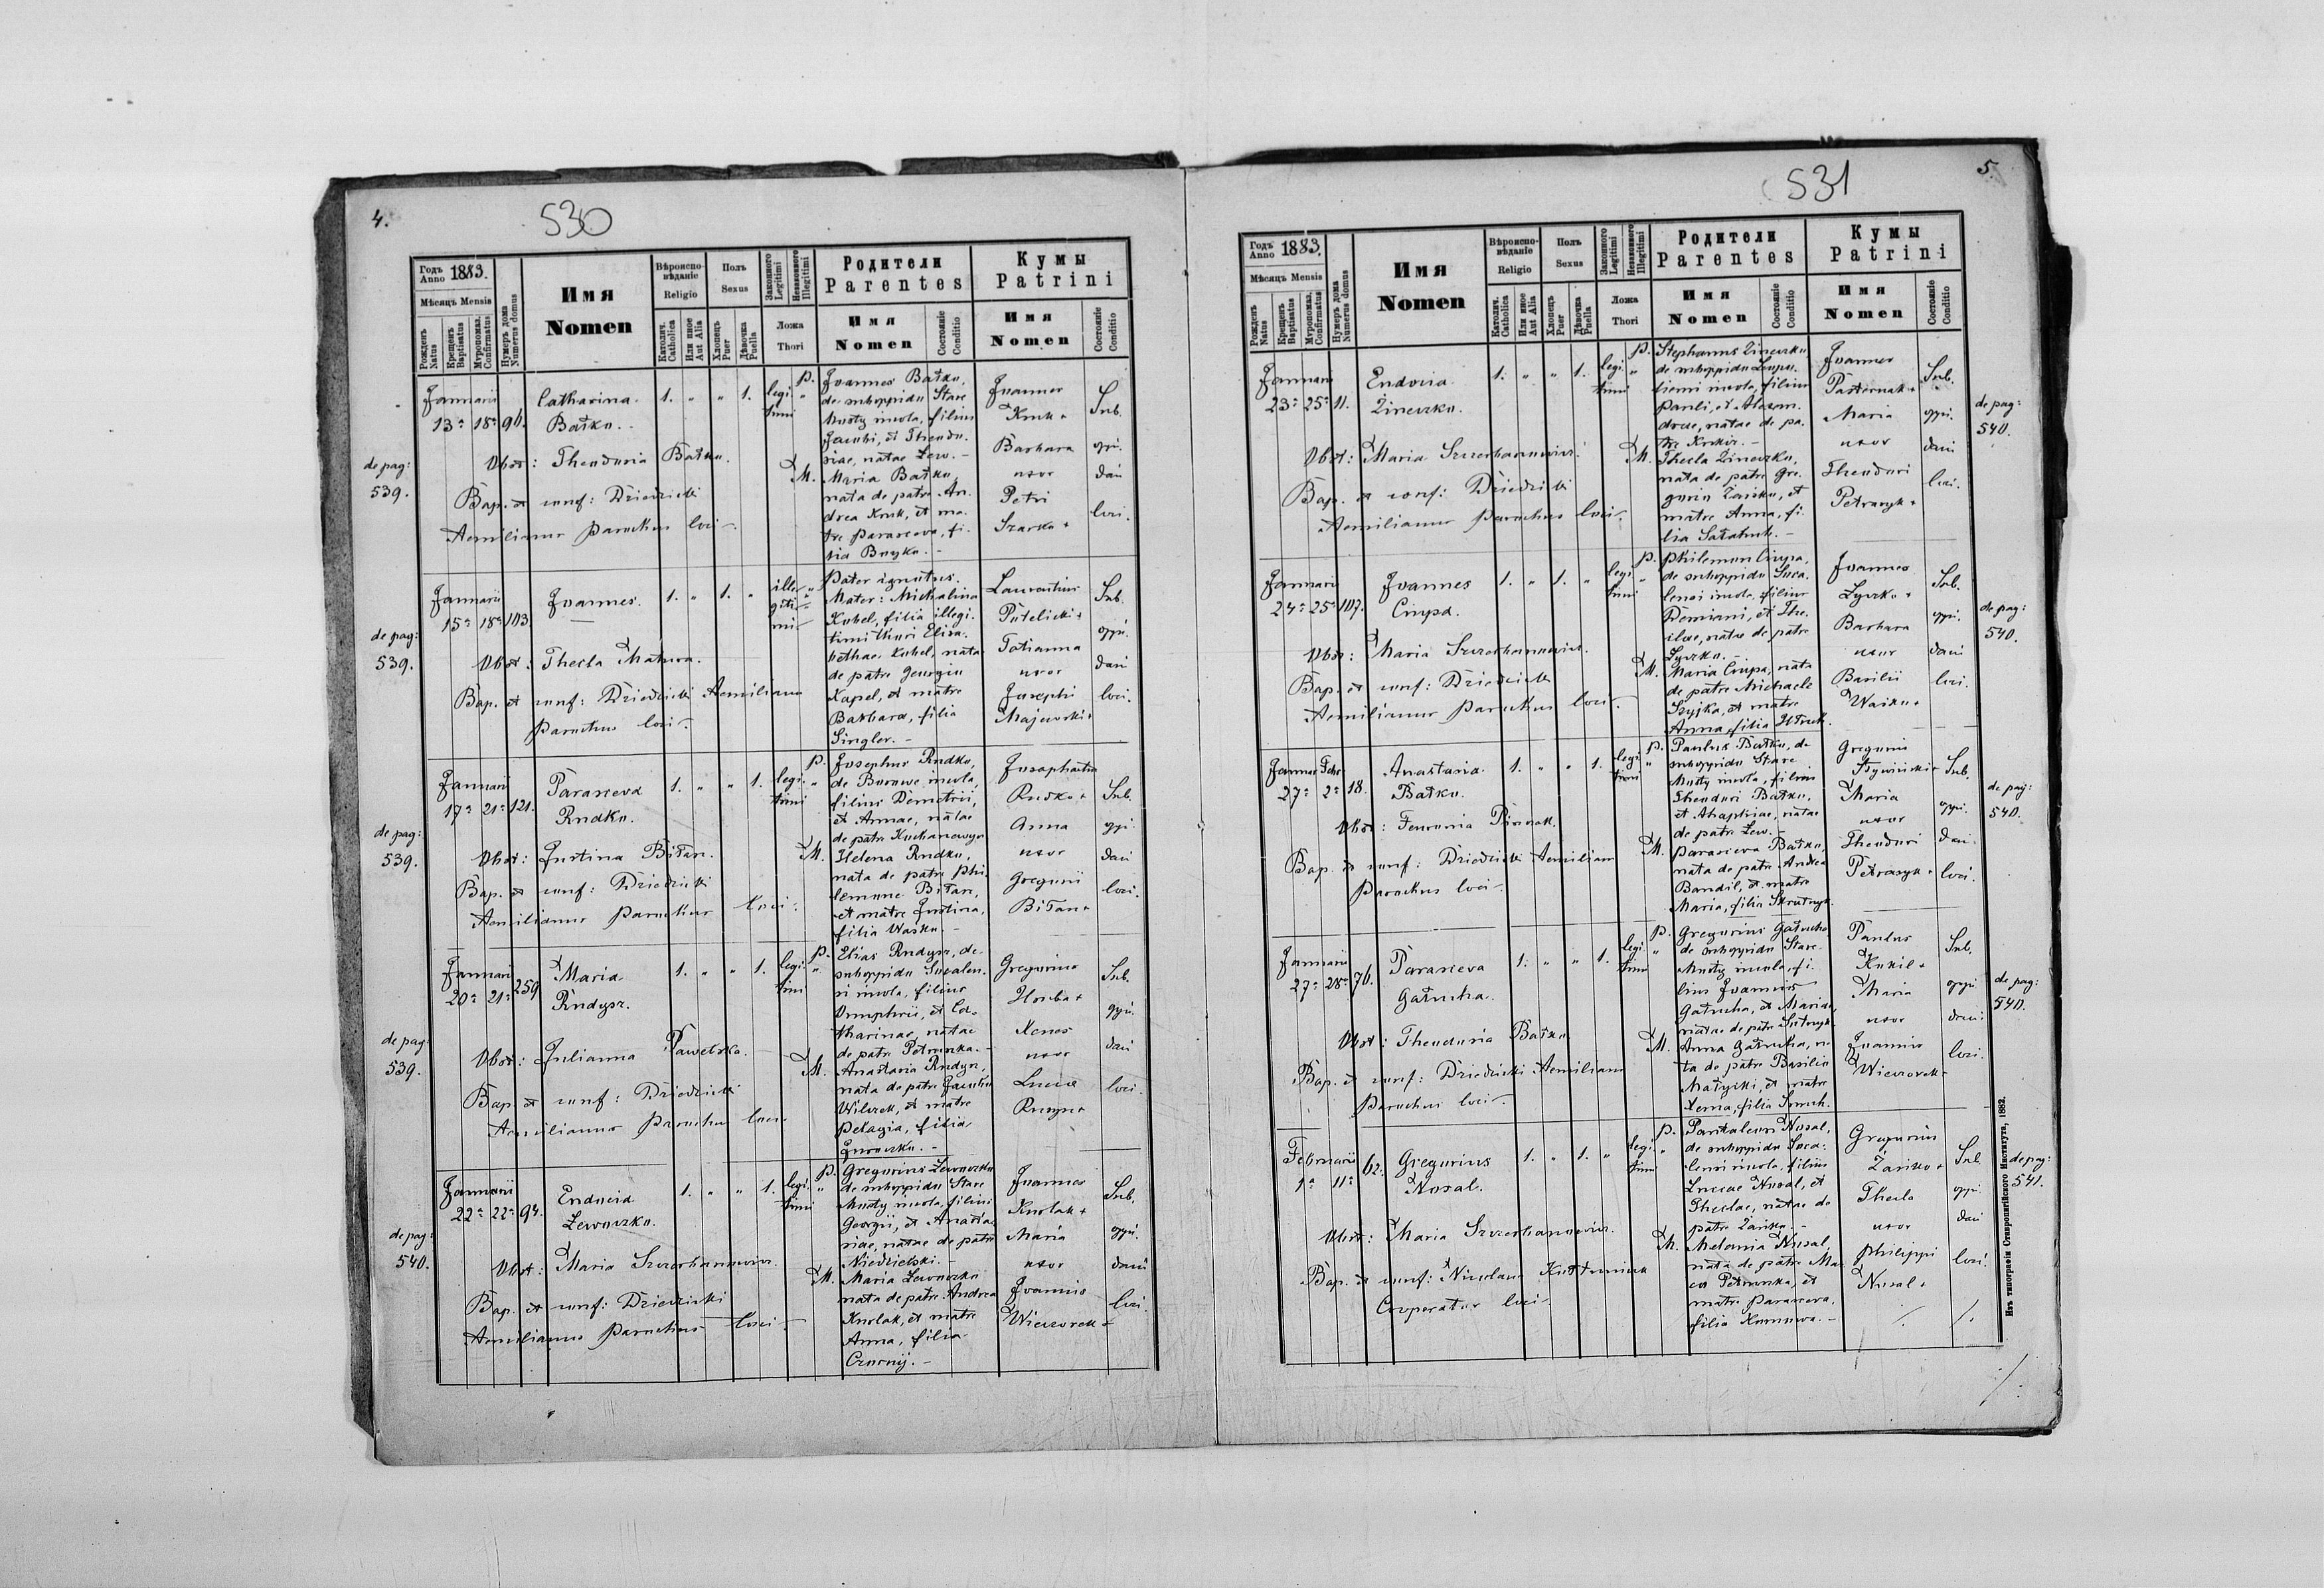 4.
530
Годъ Anno 1883.
Мѣсяцъ Mensis
Рожденъ Natus
Крещенъ Baptisatus
Муропомаз. Confirmatus
Нумеръ дома Numerus domus
Имя Nomen
Вѣроиспо-вѣданіе Religio
Католич. Catholica
Или иное Aut Alia
Полъ Sexus
Хлопецъ Puer
Дѣвочка Puella
Законного Legitimi
Незаконного Illegitimi
Ложа Thori
Родители Parentes
Имя Nomen
Состояніе Conditio
Кумы Patrini
Имя Nomen
Состояніе Conditio
de pag:
539.
Januarii
13a 18a 96.
Catharina
Batko.
1. " " 1. legi-
timi "
Obst: Theodoria Batko.
Bap. et conf: Dziedzicki
Aemilianus Parochus loci
P. Joannes Batko,
de suboppido Stare
Mosty incola, filius
Jacobi, et Theodo-
siae, natae Lew.
M. Maria Batko
nata de patre An-
drea Kruk, et ma-
tre Parasceva, fi-
lia Buyko.
Joannes
Kruk +
Barbara
uxor
Petri
Szarko +
Sub.
oppi-
dani
loci.
de pag:
539.
Januarii
15a 18a 103
Joannes.
1. " 1. " ille-
giti-
mi
Obst: Thecla Matwa.
Bap. et conf: Dziedzicki Aemilianus
Parochus loci
Pater ignotus.
Mater: Michalina
Kobel, filia illegi-
timi thori Elisa-
bethae Kobel, nata
de patre Georgio
Kapel, et matre
Barbara, filia
Singler.
Laurentius
Putelicki +
Tatianna
uxor
Josephi
Majewski +
Sub.
oppi-
dani
loci.
de pag:
539.
Januarii
17a 21a 121.
Parasceva
Rudko.
1. " " 1. legi-
timi "
Obst: Justina Bitan.
Bap. et conf: Dziedzicki
Aemilianus Parochus loci
P. Josephus Rudko,
de Borowe incola,
filius Demetrii,
et Annae, natae
de patre Kochanowycz
M. Helena Rudko,
nata de patre Phi-
lemone Bitan,
et matre Justina,
filia Wasko.
Josaphatus
Rudko +
Anna
uxor
Gregorii
Bitan +
Sub.
oppi-
dani
loci.
de pag:
539.
Januarii
20a 21a 259
Maria
Rudysz.
1. " " 1. legi-
timi "
Obst: Julianna Pawelko.
Bap. et conf: Dziedzicki
Aemilianus Parochus loci
P. Elias Rudysz, de
suboppido Socalen-
si incola, filius
Onuphrii, et Ca-
tharinae, natae
de patre Petruszka.
M. Anastasia Rudysz,
nata de patre Jacobo
Wilczek, et matre
Pelagia, filia
Gregorius
Houba +
Xenes
uxor
Lucae
Sub.
oppi-
dani
loci.
de pag:
540.
Januarii
22a 22a 94.
Eudocia
Lewoczko.
1. " " 1. legi-
timi "
Obst: Maria Szczerbanowicz.
Bap. et conf: Dziedzicki
Aemilianus Parochus loci
P. Gregorius Lewoczko
de suboppido Stare
Mosty incola, filius
Georgii, et Anasta-
siae, natae de patre
Niedzielski.
M. Maria Lewoczko
nata de patre Andrea
Krolak, et matre
Anna, filia
Czornij.
Joannes
Krolak +
Maria
uxor
Joannis
Wieczorek +
Sub.
oppi-
dani
loci.
5.
531
Годъ Anno 1883.
Мѣсяцъ Mensis
Рожденъ Natus
Крещенъ Baptisatus
Муропомаз. Confirmatus
Нумеръ дома Numerus domus
Имя Nomen
Вѣроиспо-вѣданіе Religio
Католич. Catholica
Или иное Aut Alia
Полъ Sexus
Хлопецъ Puer
Дѣвочка Puella
Законного Legitimi
Незаконного Illegitimi
Ложа Thori
Родители Parentes
Имя Nomen
Состояніе Conditio
Кумы Patrini
Имя Nomen
Состояніе Conditio
Januarii
23a 25a 11.
Eudocia
Zineczko.
1. " " 1. legi-
timi "
Obst: Maria Szczerbanowicz.
Bap. et conf: Dziedzicki
Aemilianus Parochus loci
P. Stephanus Zineczko
de suboppido
incola, filius
Pauli, et Alexan-
drae, natae de pa-
tre
M. Thecla Zineczko,
nata de patre Gre-
gorio Zasiko, et
matre Anna, fi-
lia
Joannes
Pasternak +
Maria
uxor
Theodori
Petraszyk +
Sub.
oppi-
dani
loci.
de pag:
540.
Januarii
24a 25a 107.
Joannes
Ciupa.
1. " 1. " legi-
timi "
Obst: Maria Szczerbanowicz.
Bap. et conf: Dziedzicki
Aemilianus Parochus loci
P. Philemon Ciupa,
de suboppido Soca-
lensi incola, filius
Demiani, et The-
clae, natae de patre
Lyczko.
M. Maria Ciupa, nata
de patre Michaele
Szyjka, et matre
Anna, filia
Joannes
Lyczko +
Barbara
uxor
Basilii
Wasko +
Sub.
oppi-
dani
loci.
de pag:
540.
Januar Febr
27a 2a 18.
Anastasia
Batko.
1. " " 1. legi-
timi "
Obst: Fewronia
Bap. et conf: Dziedzicki Aemilianus
Parochus loci
P. Paulus Batko, de
suboppido Stare
Mosty incola, filius
Theodori Batko,
et Ahaphiae, natae
de patre Lew.
M. Parasceva Batko,
nata de patre Andrea
Bandil, et matre
Maria, filia
Gregorius
Maria
uxor
Theodori
Petraszyk +
Sub.
oppi-
dani
loci.
de pag:
540.
Januarii
27a 28a 76.
Parasceva
Gatucha.
1. " " 1. legi-
timi "
Obst: Theodoria Batko
Bap. et conf: Dziedzicki Aemilianus
Parochus loci
P. Gregorius Gatucha
de suboppido Stare
Mosty incola, fi-
lius Joannis
Gatucha, et Mariae,
natae de patre
M. Anna Gatucha, na-
ta de patre Basilio
Matycki, et matre
Xenia, filia
Paulus
Kukil +
Maria
uxor
Joannis
Wieczorek +
Sub.
oppi-
dani
loci.
de pag:
540.
Februarii
1a 11a 62.
Gregorius
Nosal.
1. " 1. " legi-
timi "
Obst: Maria Szczerbanowicz.
Bap. et conf: Nicolaus
Cooperator loci
P. Pantaleon Nosal,
de suboppido Soca-
lensi incola, filius
Lucae Nosal, et
Theclae, natae de
patre Zasiko.
M. Melania Nosal,
nata de patre
Petruszka, et
matre Parasceva,
filia
Gregorius
Zasiko +
Thecla
uxor
Philippi
Nosal +
Sub.
oppi-
dani
loci.
de pag:
541.
Изъ типографіи Ставропигійского Института, 1882.